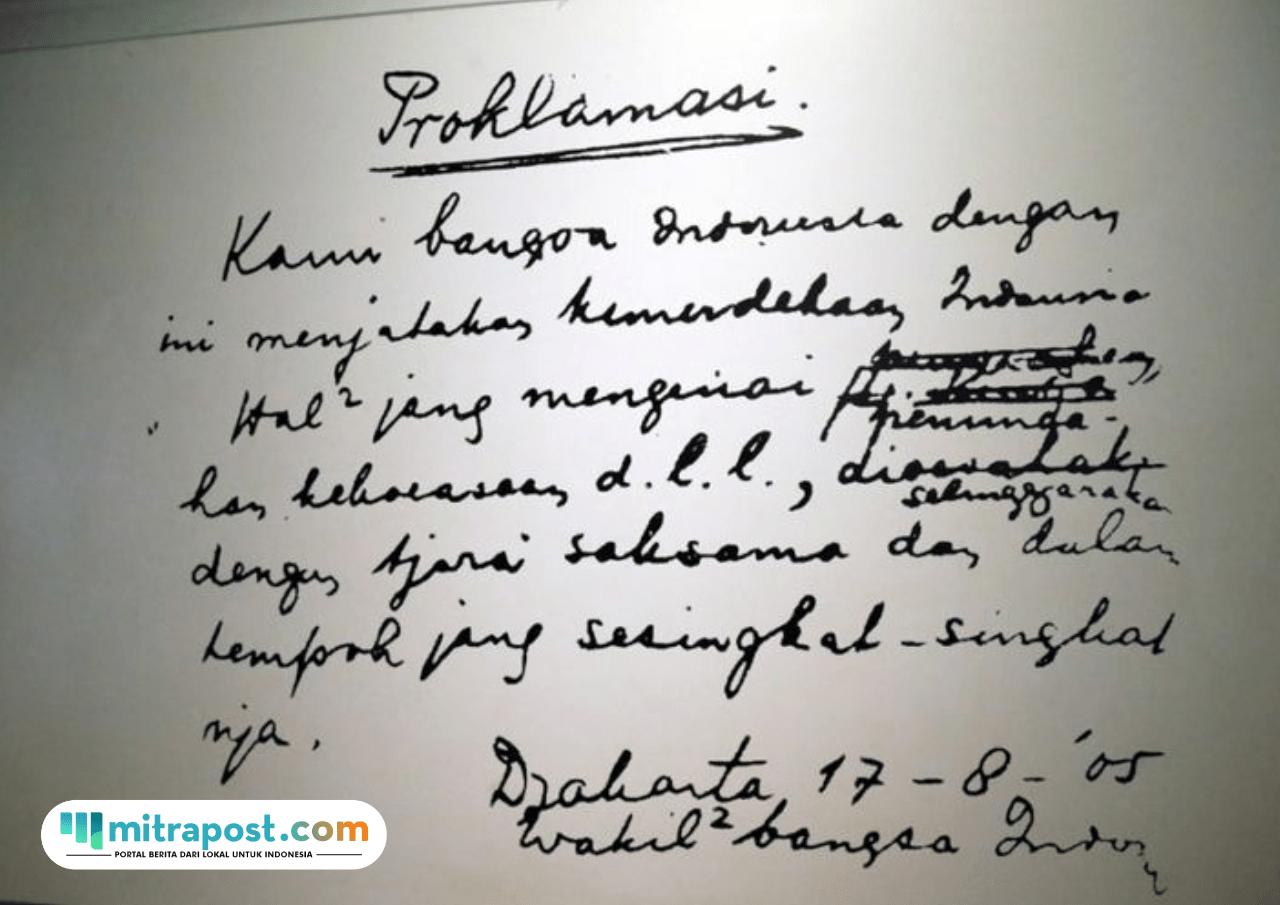 Proklamasi.
Kami bangsa Indonesia dengan
ini menjatakan kemerdekaan Indonesia
Hal² jang mengenai
peminda-
han kekoeasaan d.l.l., dioesahakan
selenggarakan
dengan tjara saksama dan dalam
tempoh jang sesingkat-singkat
nja.
Djakarta 17 - 8 - '05
Wakil² bangsa Indon
mitrapost.com
PORTAL BERITA DARI LOKAL UNTUK INDONESIA